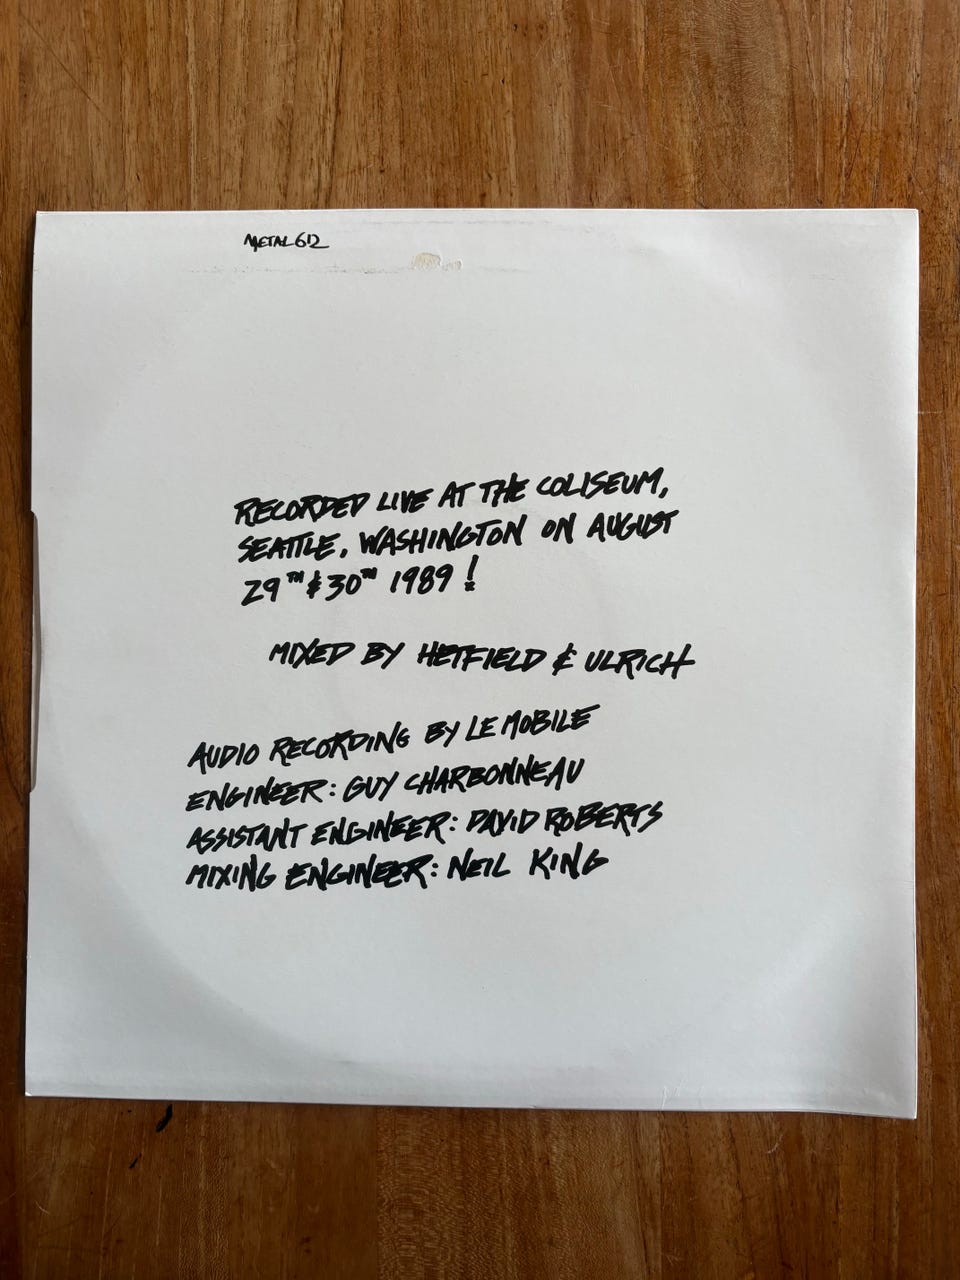 METAL612
RECORDED LIVE AT THE COLISEUM,
SEATTLE, WASHINGTON ON AUGUST
29TH & 30TH 1989!
MIXED BY HETFIELD & ULRICH
AUDIO RECORDING BY LE MOBILE
ENGINEER: GUY CHARBONNEAU
ASSISTANT ENGINEER: DAVID ROBERTS
MIXING ENGINEER: NEIL KING